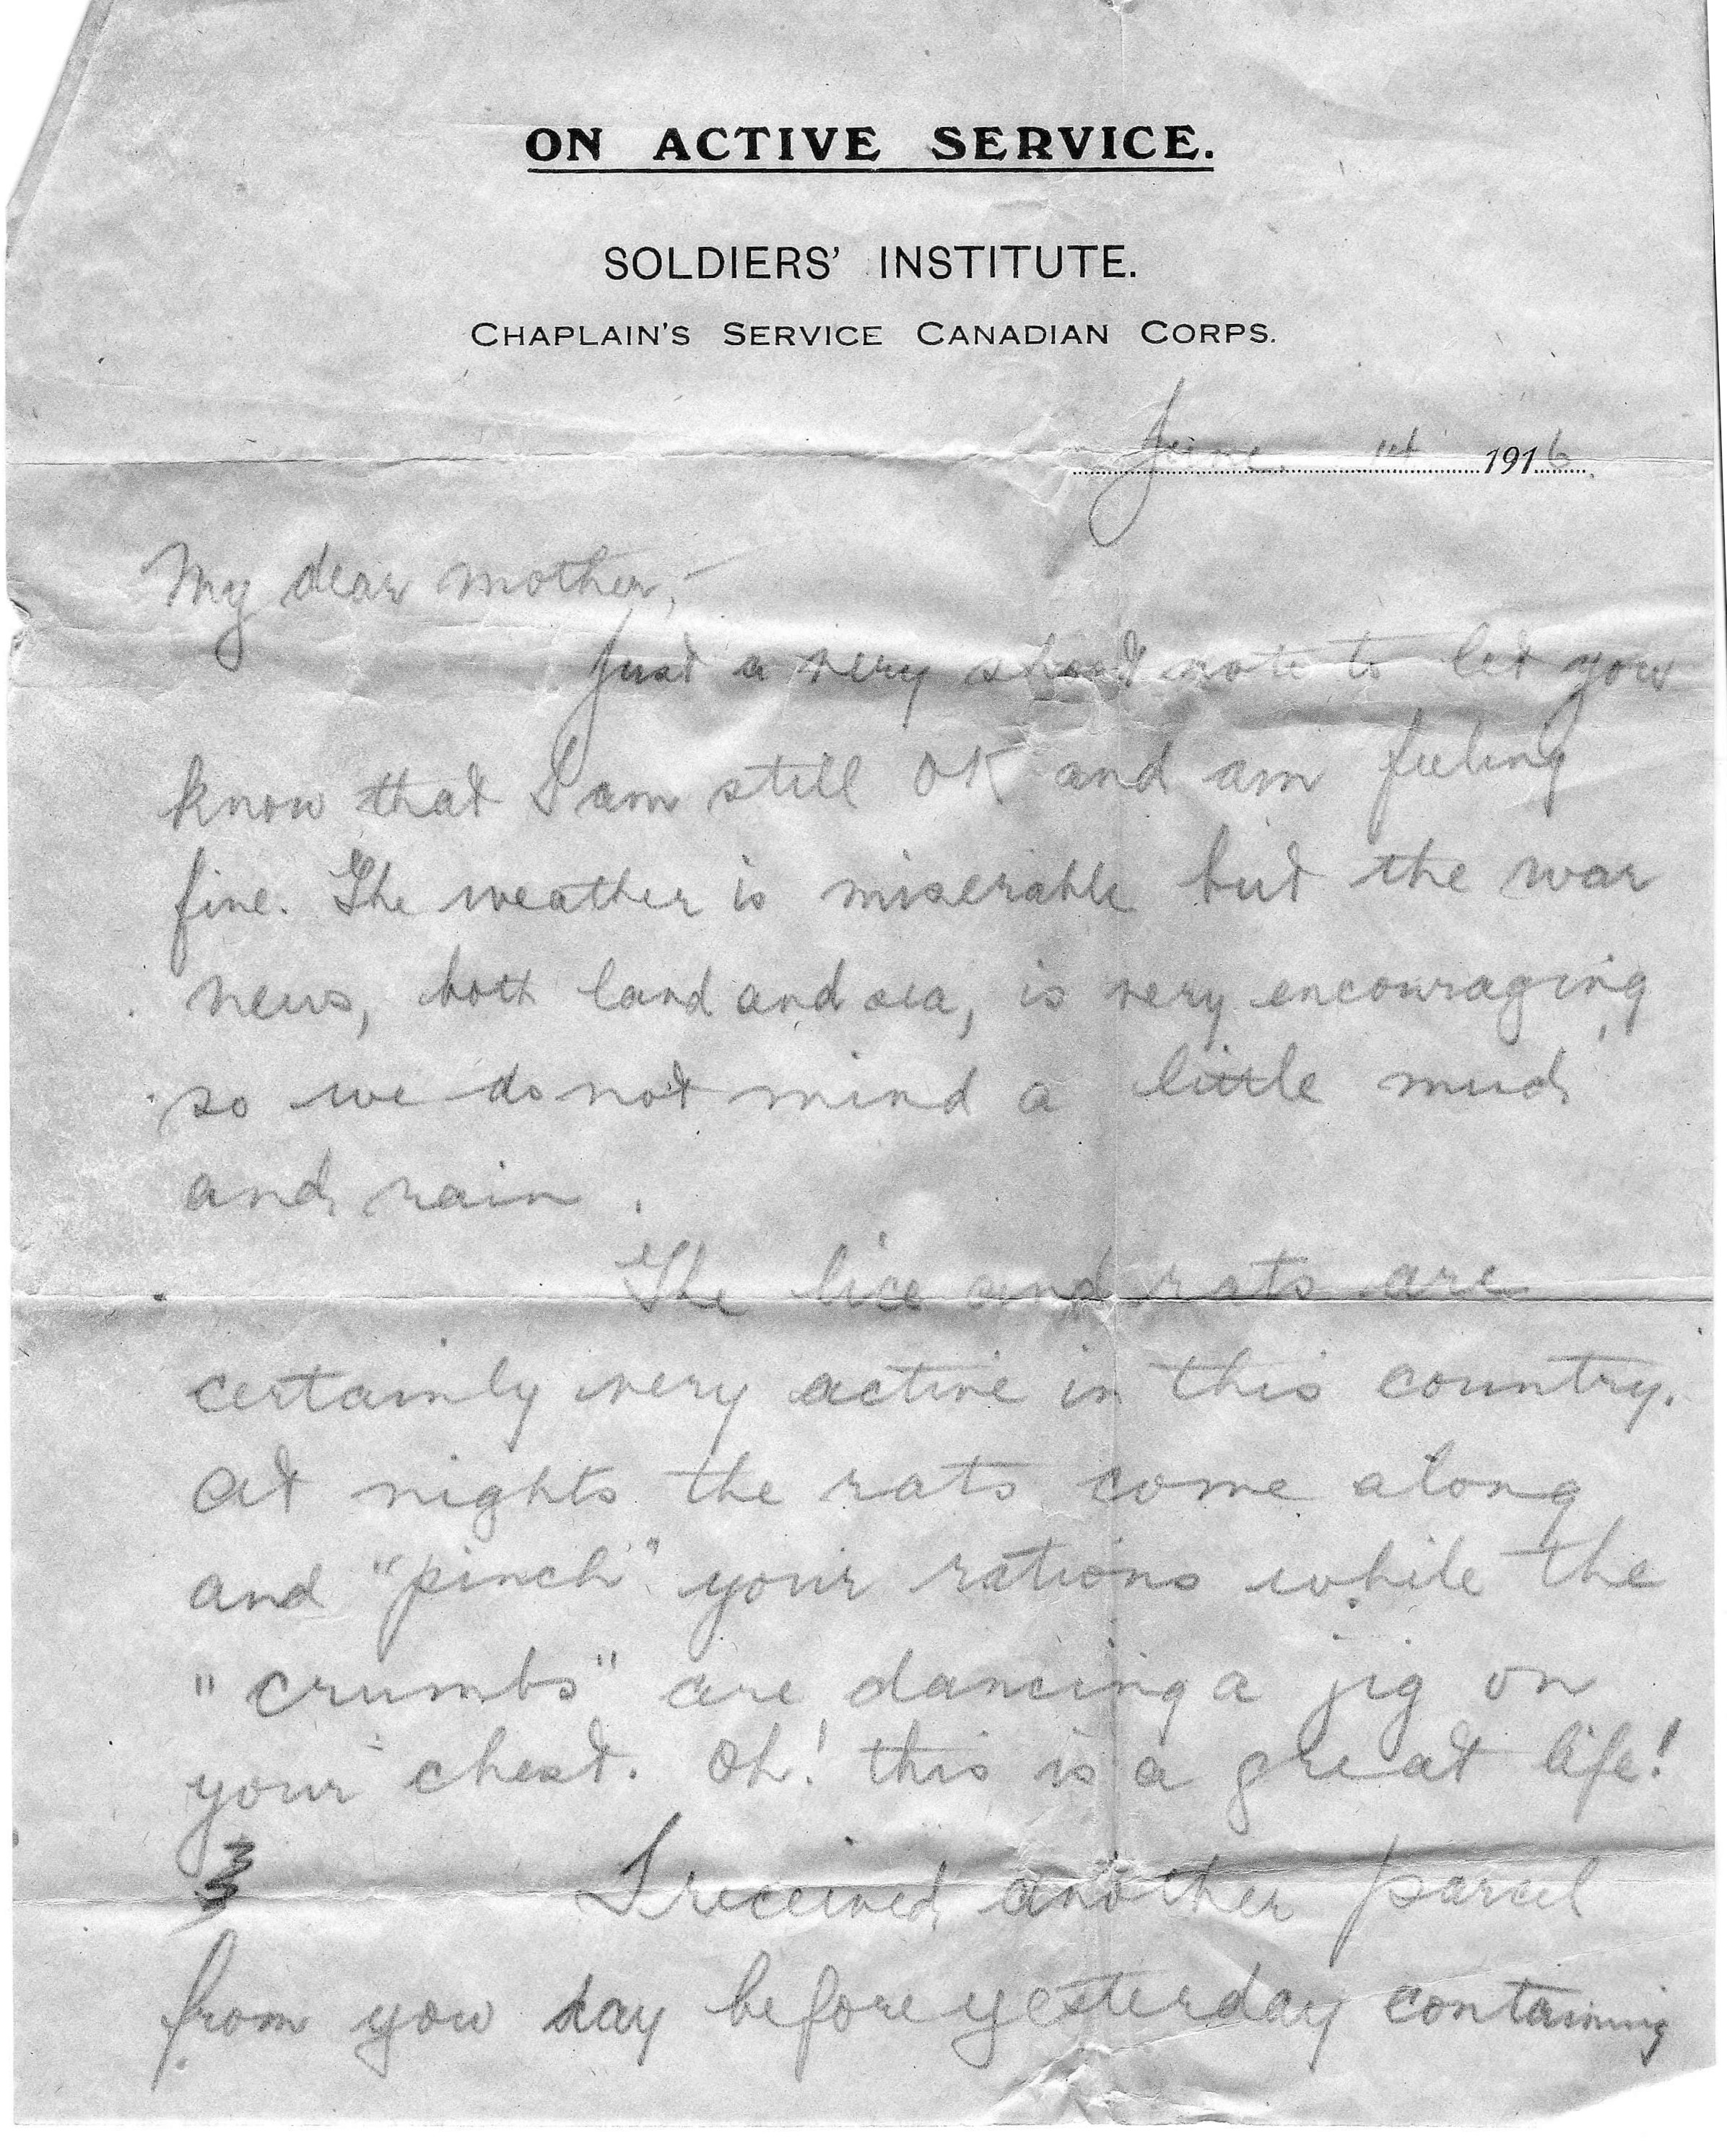 ON ACTIVE SERVICE.
SOLDIERS' INSTITUTE.
CHAPLAIN'S SERVICE CANADIAN CORPS.
June 14 1916
My dear mother,—
Just a very short note to let you
know that I am still OK and am feeling
fine. The weather is miserable but the war
news, both land and sea, is very encouraging
so we do not mind a little mud
and rain.
The lice and rats are
certainly very active in this country.
At nights the rats come along
and "pinch" your rations while the
"crumbs" are dancing a jig on
your chest. Oh! this is a great life!
I received another parcel
from you day before yesterday containing